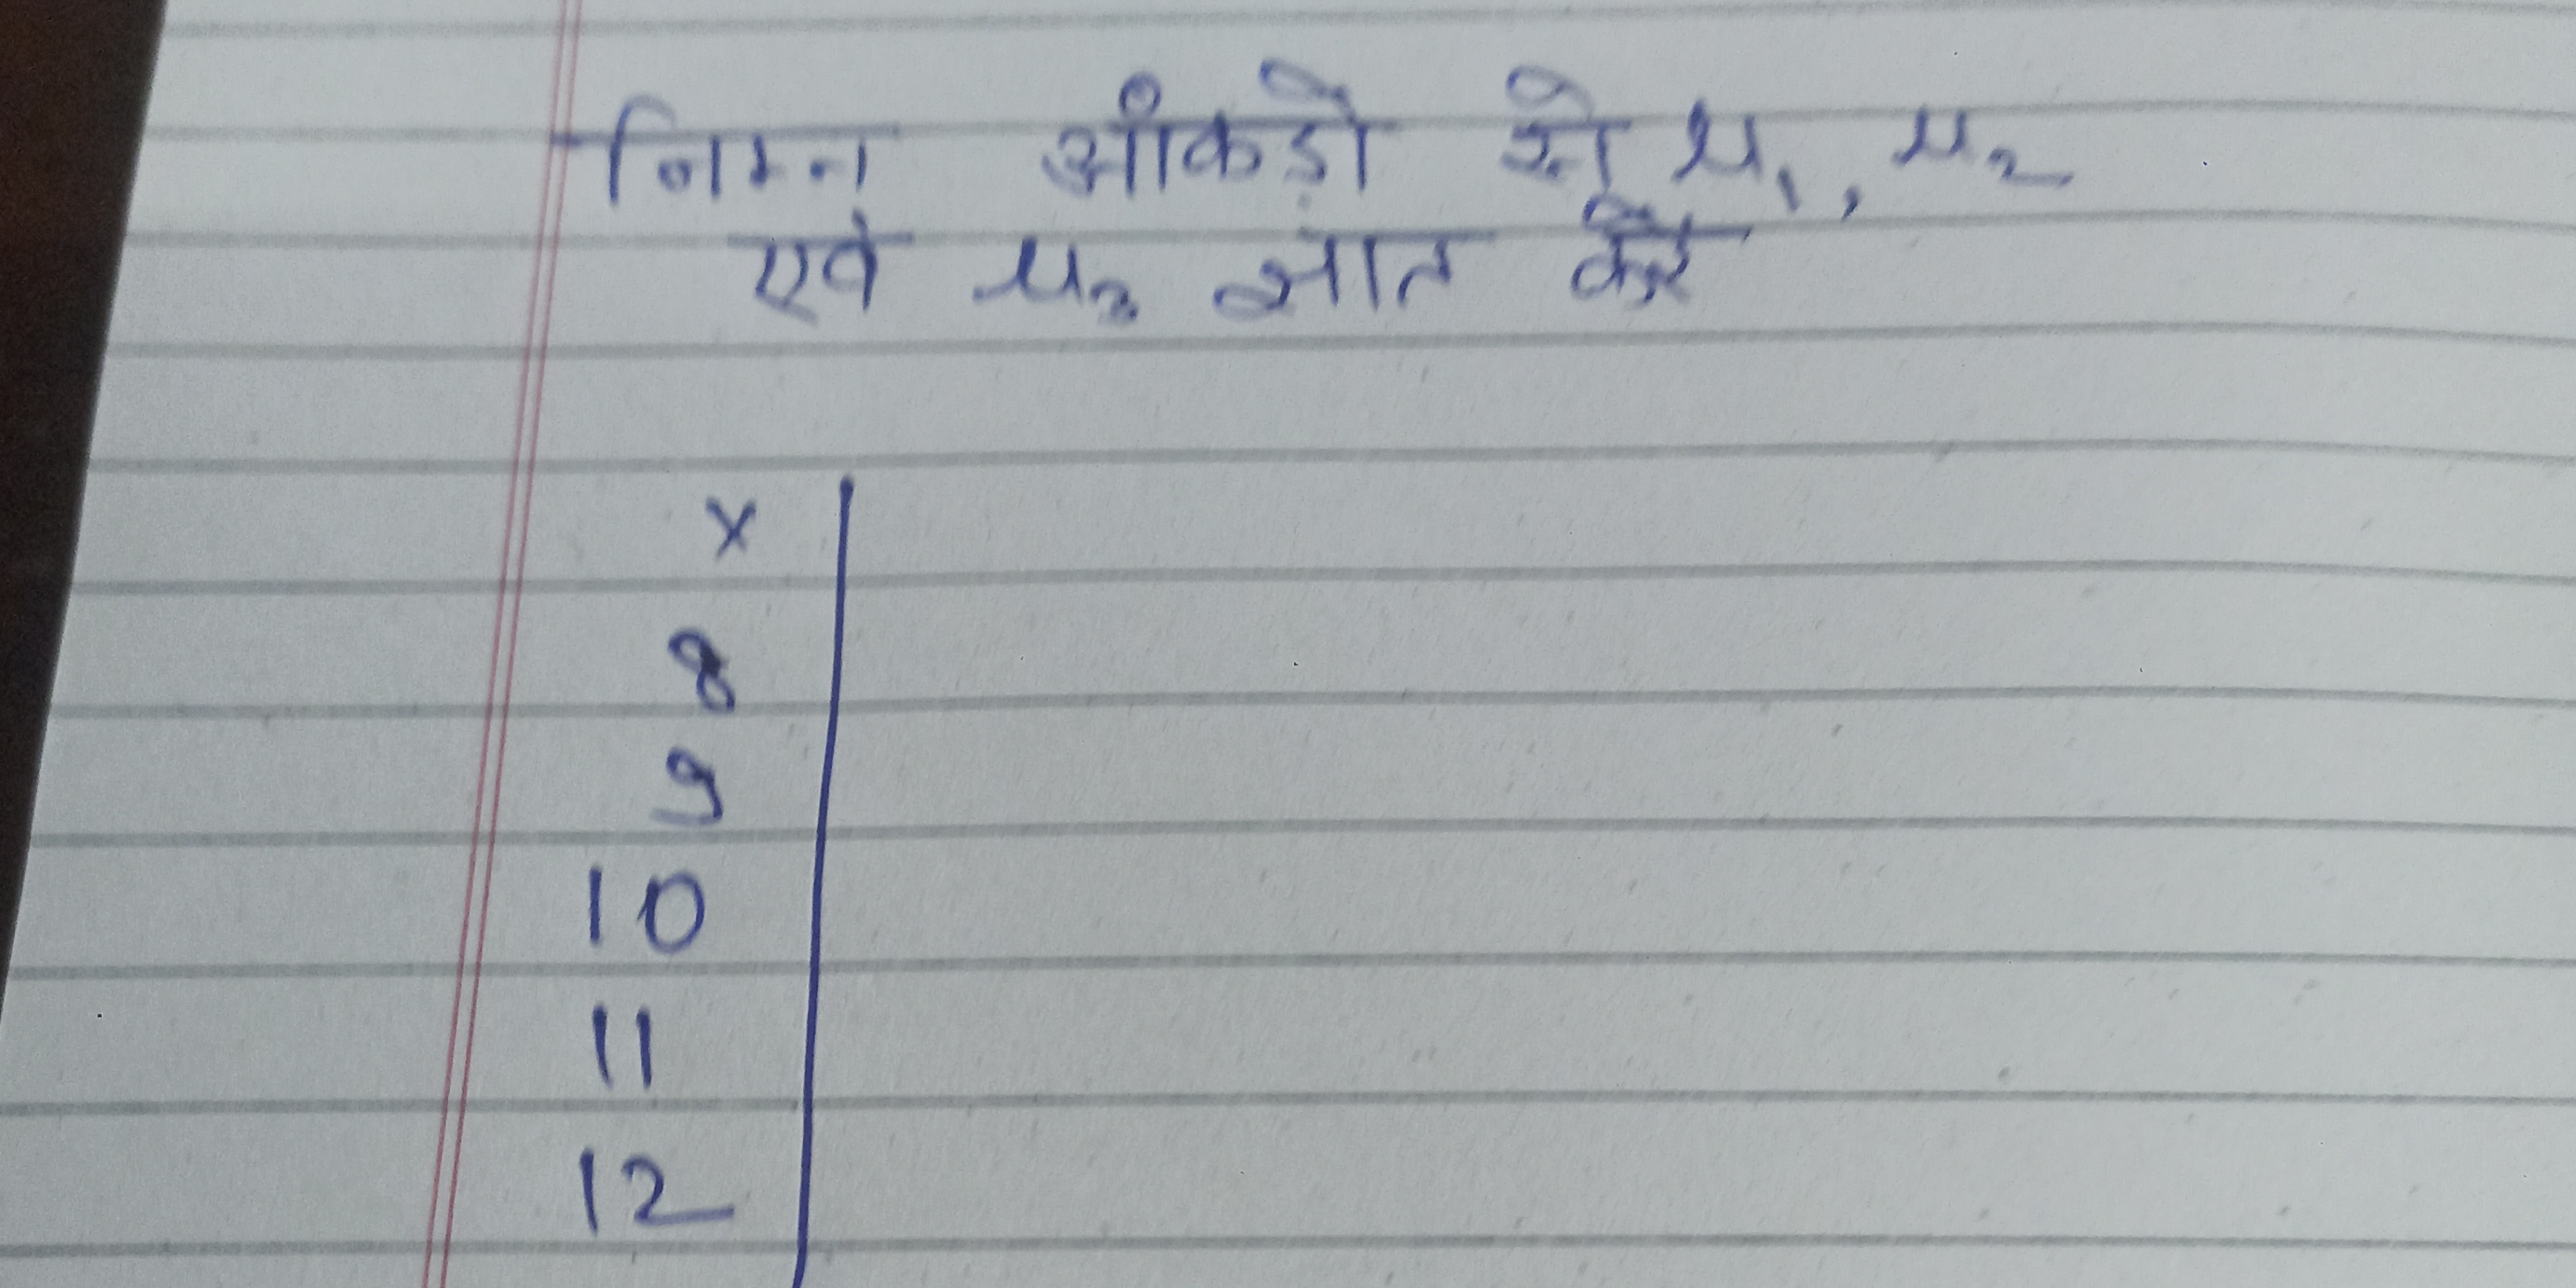 निम्न आँकड़ो से μ₁, μ₂
एवं μ₃ ज्ञात करें
x
8
9
10
11
12